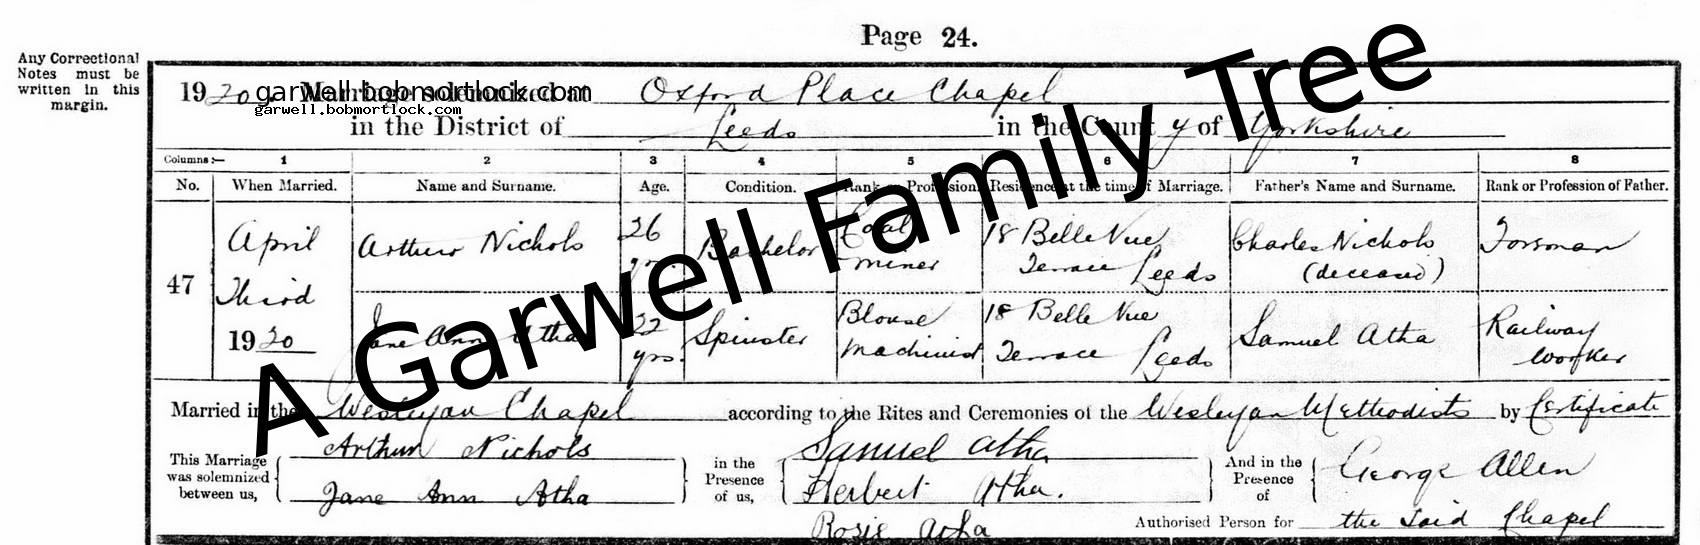 Page 24.
Any Correctional
Notes must be
written in this
margin.
1920. Marriage solemnized at Oxford Place Chapel
garwell.bobmortlock.com
garwell.bobmortlock.com
in the District of Leeds in the County of Yorkshire
Columns :— 1 2 3 4 5 6 7 8
No. When Married. Name and Surname. Age. Condition. Rank or Profession. Residence at the time of Marriage. Father's Name and Surname. Rank or Profession of Father.
47 April Third 1920 Arthur Nichols 26 yrs. Bachelor Coal Miner 18 Belle Vue Terrace Leeds Charles Nichols (deceased)
Jane Ann Atha 22 yrs. Spinster Blouse Machinist 18 Belle Vue Terrace Leeds Samuel Atha Railway Worker
Married in the Wesleyan Chapel according to the Rites and Ceremonies of the Wesleyan Methodists by Certificate
This Marriage
was solemnized
between us,
Arthur Nichols
Jane Ann Atha
in the
Presence
of us,
Samuel Atha
Herbert Atha.
Rosie Atha
And in the
Presence
of
George Allen
Authorised Person for the said Chapel
A Garwell Family Tree